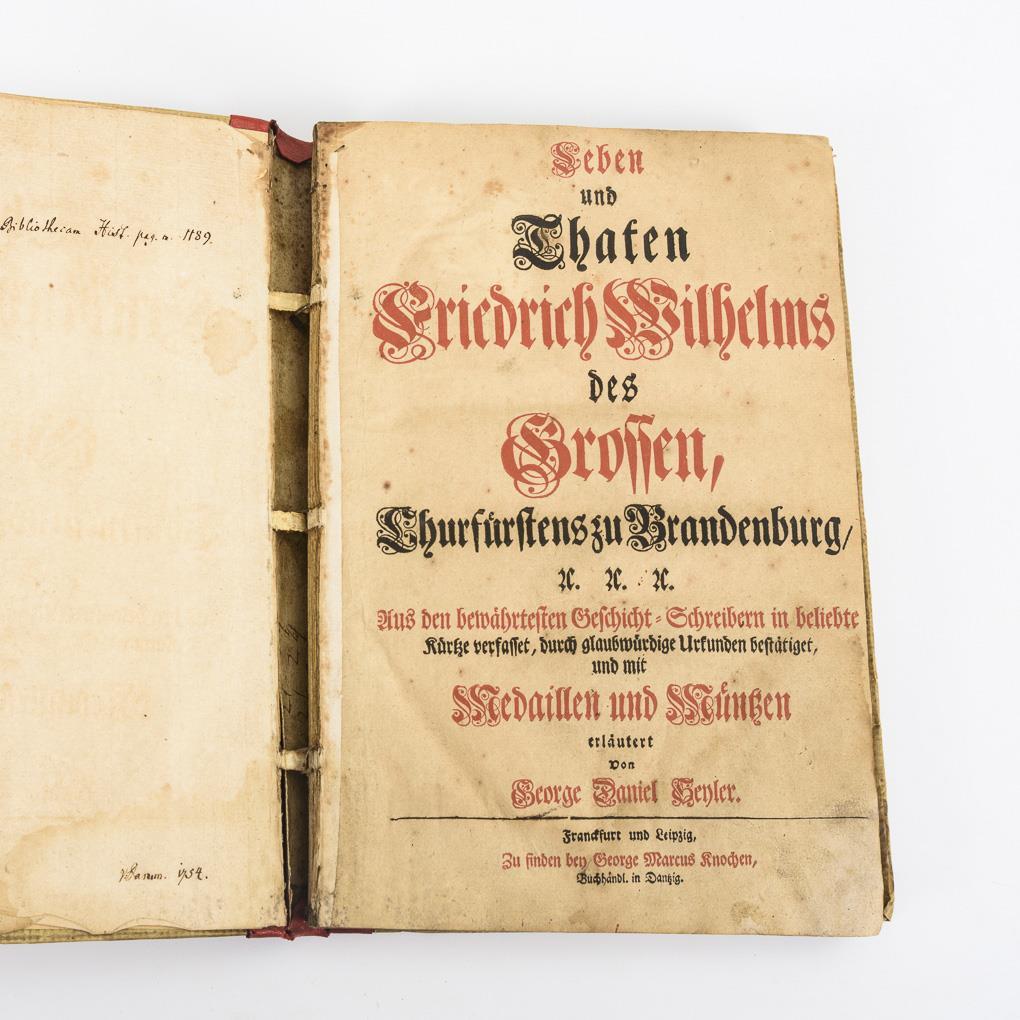 Bibliothecam Hist. pag. m. 1189.
1754.
Leben
und
Thaten
Friedrich Wilhelms
des
Grossen,
Churfürstens zu Brandenburg/
ꝛc. ꝛc. ꝛc.
Aus den bewährtesten Geschicht-Schreibern in beliebte
Kürtze verfasset, durch glaubwürdige Urkunden bestätiget,
und mit
Medaillen und Müntzen
erläutert
von
George Daniel Seyler.
Franckfurt und Leipzig,
Zu finden bey George Marcus Knochen,
Buchhändl. in Dantzig.